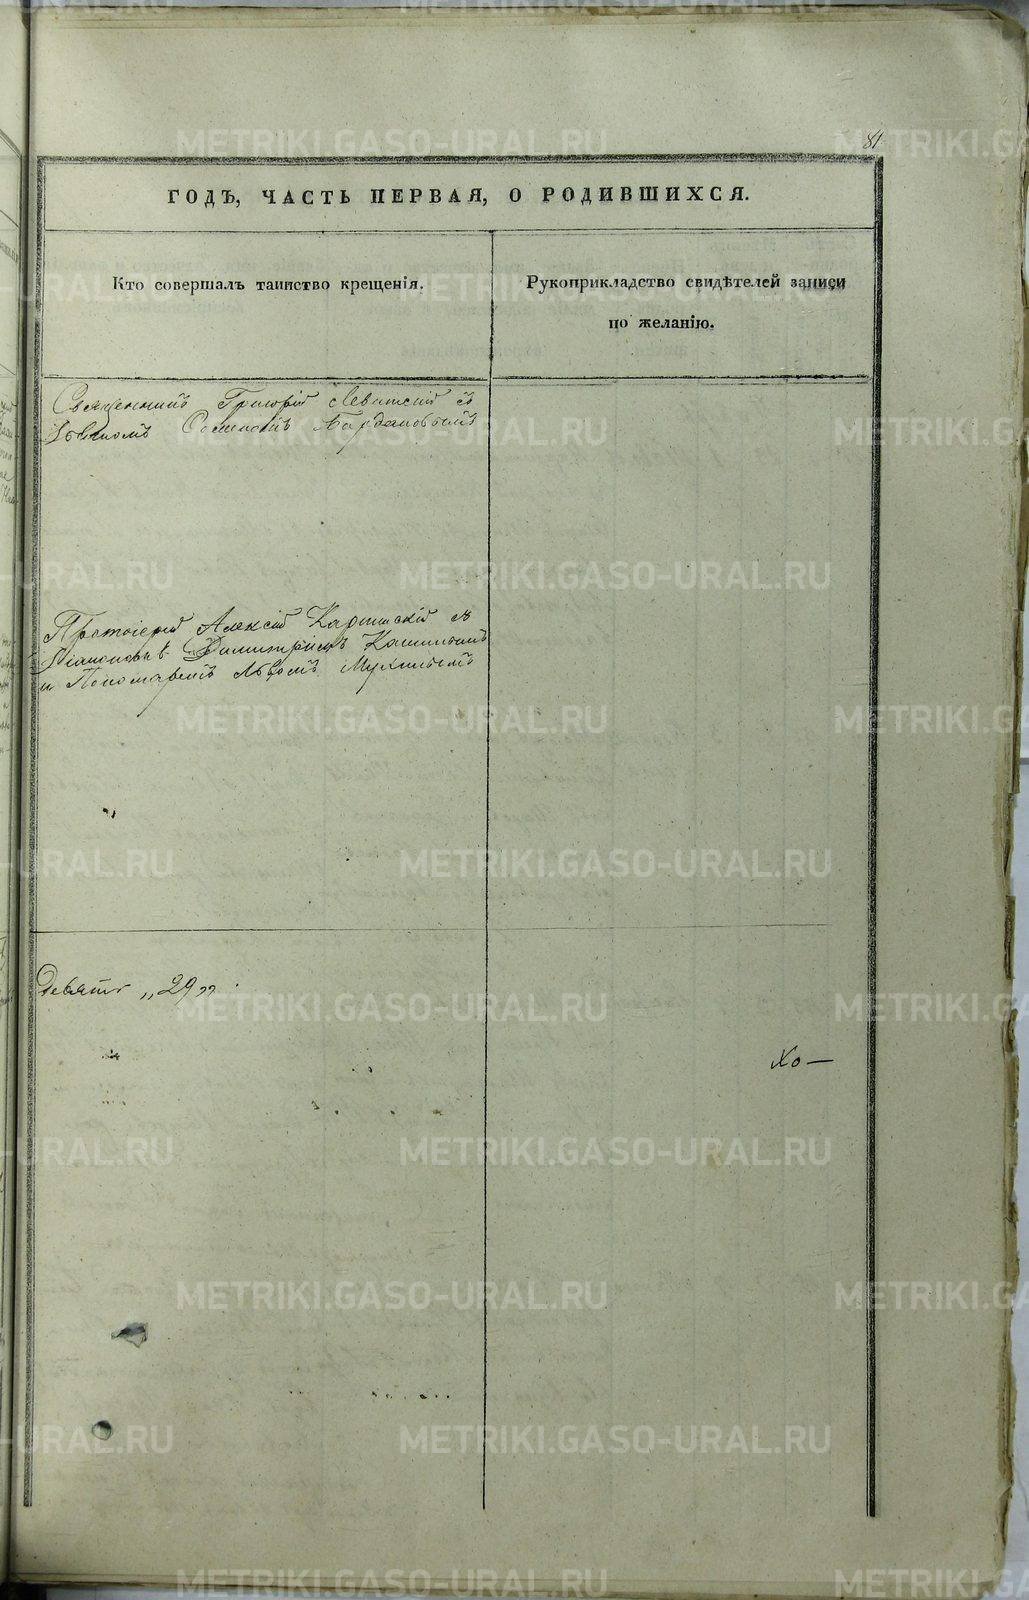 81
ГОДЪ, ЧАСТЬ ПЕРВАЯ, О РОДИВШИХСЯ.
Кто совершалъ таинство крещенія.
Рукоприкладство свидѣтелей записи
по желанію.
Священникъ Григорій Левитскій съ
Дьячкомъ
Протоіерей Алексій Карпинскій съ
Діакономъ Димитріемъ Кашинымъ
и Пономаремъ Львомъ
девять „29„
Хо—
METRIKI.GASO-URAL.RU